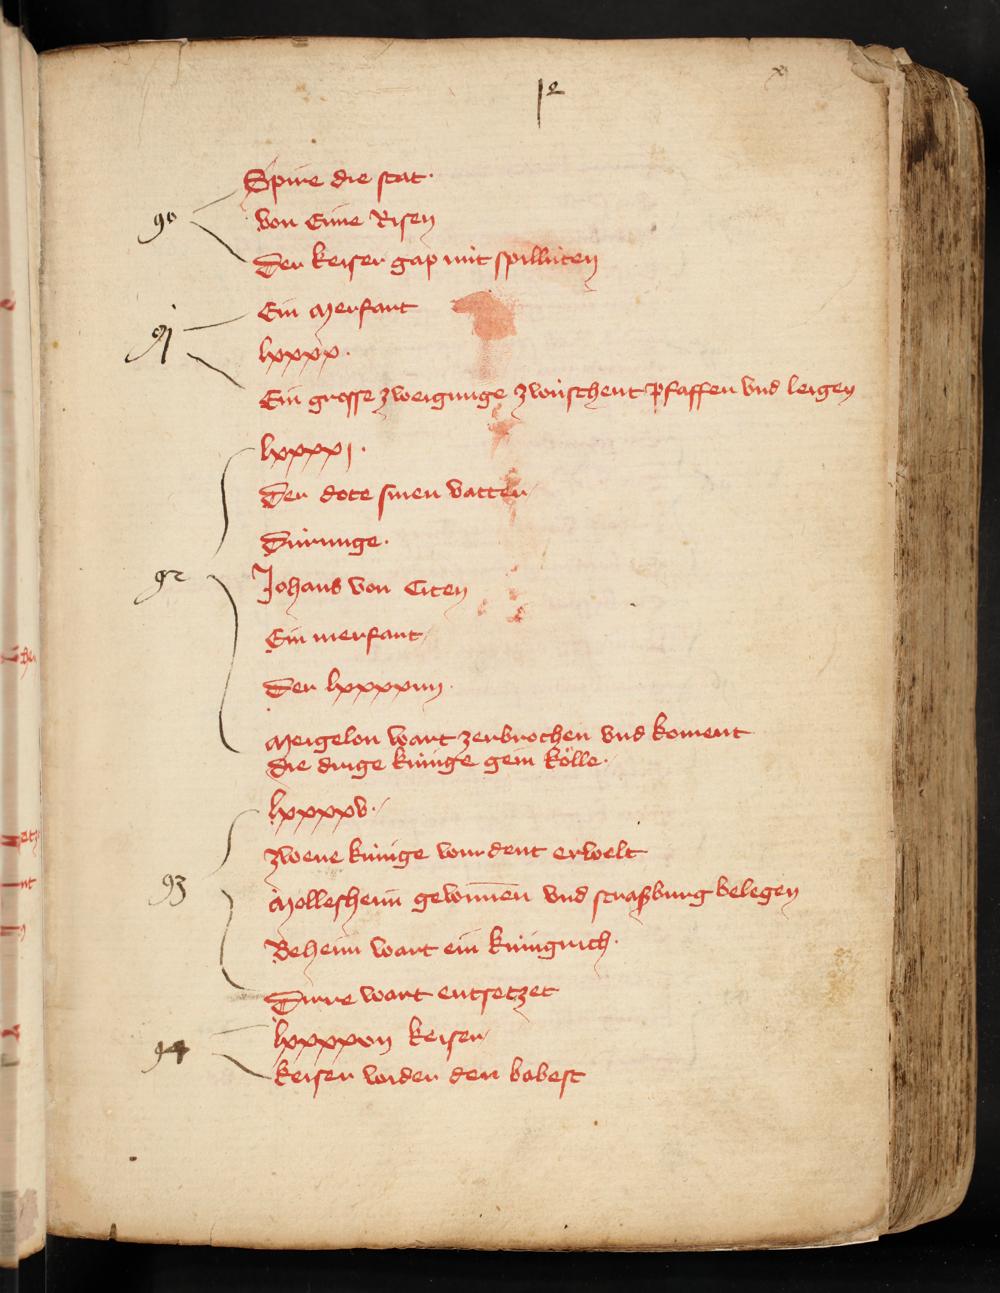 12
xj
90
Spire die stat.
von Eime Risen
Der keiser gap nút spillúten
91
Ein Merfart
lxxxx.
Ein grosse zweigunge zwúschent pfaffen vnd leigen
lxxxxj.
Der dote sinen vatter
Dúringe.
92
Johans von Citen
Ein merfart
Der lxxxxiiij.
Meigelon wart zerbrochen vnd koment
die drige kúnige gein Kölle.
lxxxxv.
Zwene kúnige wurdent erwelt
93
Mollesheim gewinnen vnd straßburg belegen
Beheim wart ein kúnigrich.
Dirre wart entsetzet
94
lxxxxvij keiser
keiser wider den babest